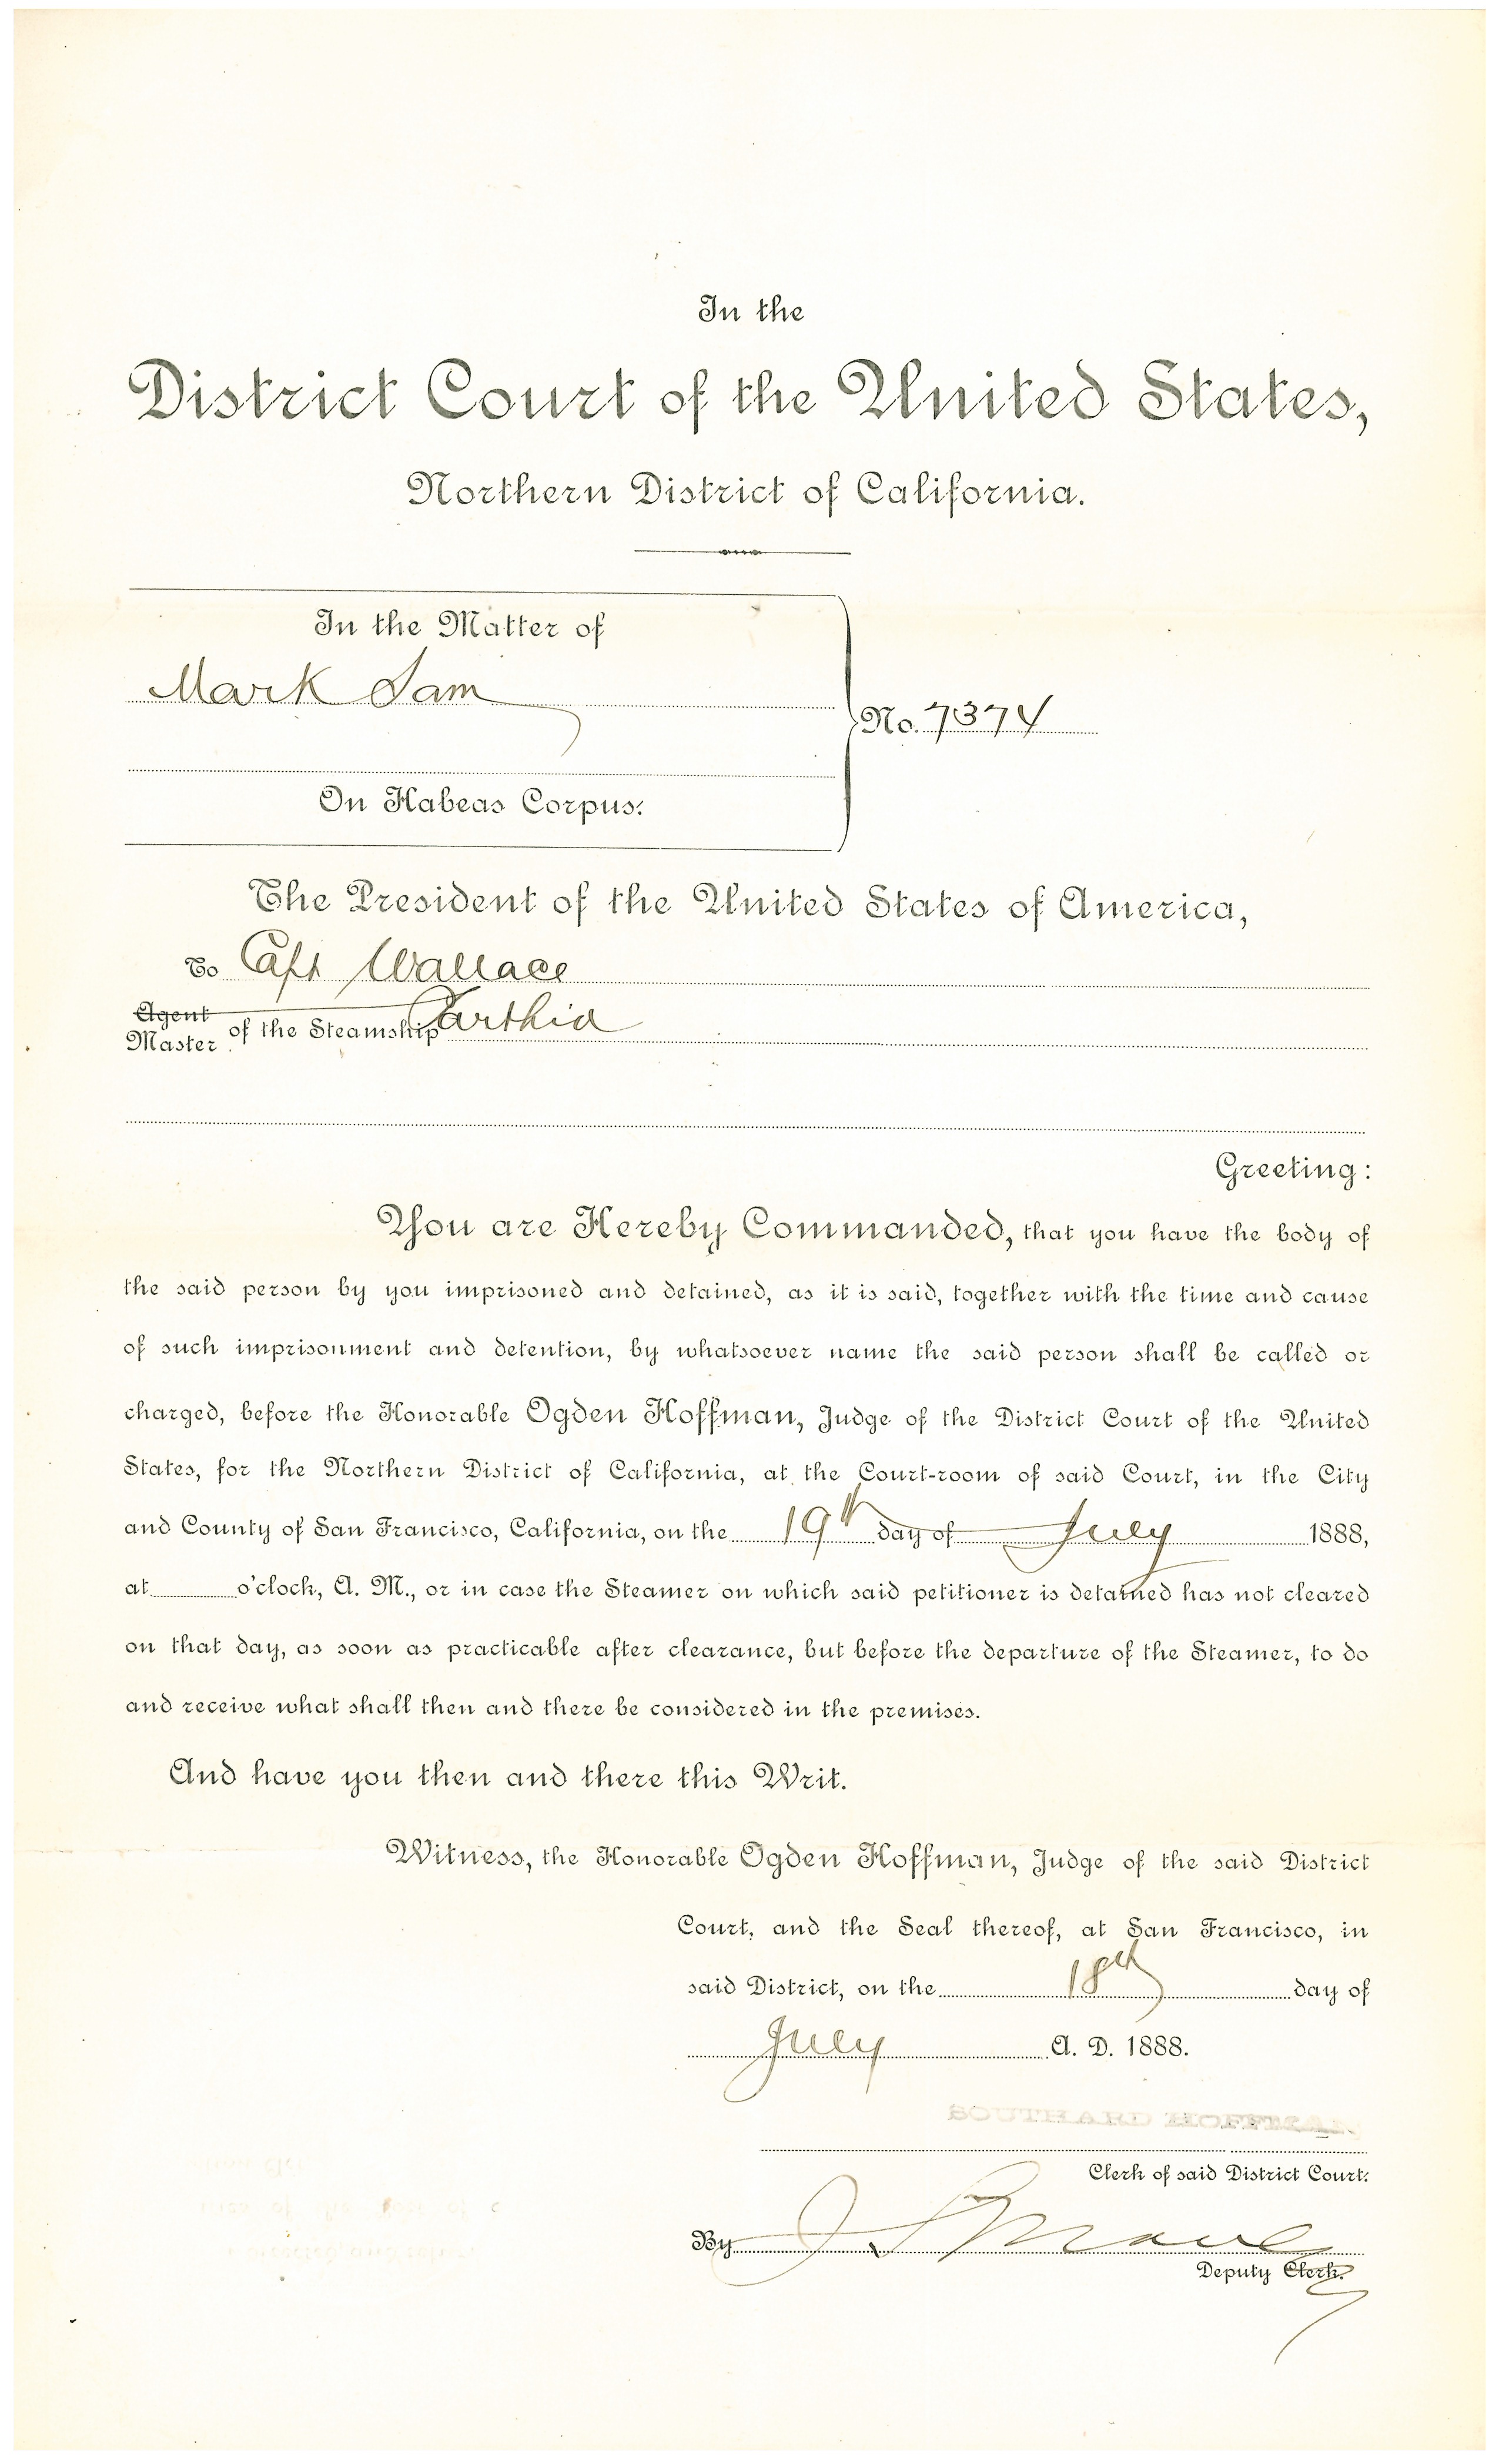 In the
District Court of the United States,
Northern District of California.
In the Matter of
Mark Sam
No. 7374
On Habeas Corpus.
The President of the United States of America,
To Capt Wallace
Agent
Master of the Steamship Parthia
Greeting:
You are Hereby Commanded, that you have the body of
the said person by you imprisoned and detained, as it is said, together with the time and cause
of such imprisonment and detention, by whatsoever name the said person shall be called or
charged, before the Honorable Ogden Hoffman, Judge of the District Court of the United
States, for the Northern District of California, at the Court-room of said Court, in the City
and County of San Francisco, California, on the 19th day of July 1888,
at o'clock, A. M., or in case the Steamer on which said petitioner is detained has not cleared
on that day, as soon as practicable after clearance, but before the departure of the Steamer, to do
and receive what shall then and there be considered in the premises.
And have you then and there this Writ.
Witness, the Honorable Ogden Hoffman, Judge of the said District
Court, and the Seal thereof, at San Francisco, in
said District, on the 18th day of
July A. D. 1888.
SOUTHARD HOFFMAN
Clerk of said District Court.
By
Deputy Clerk.